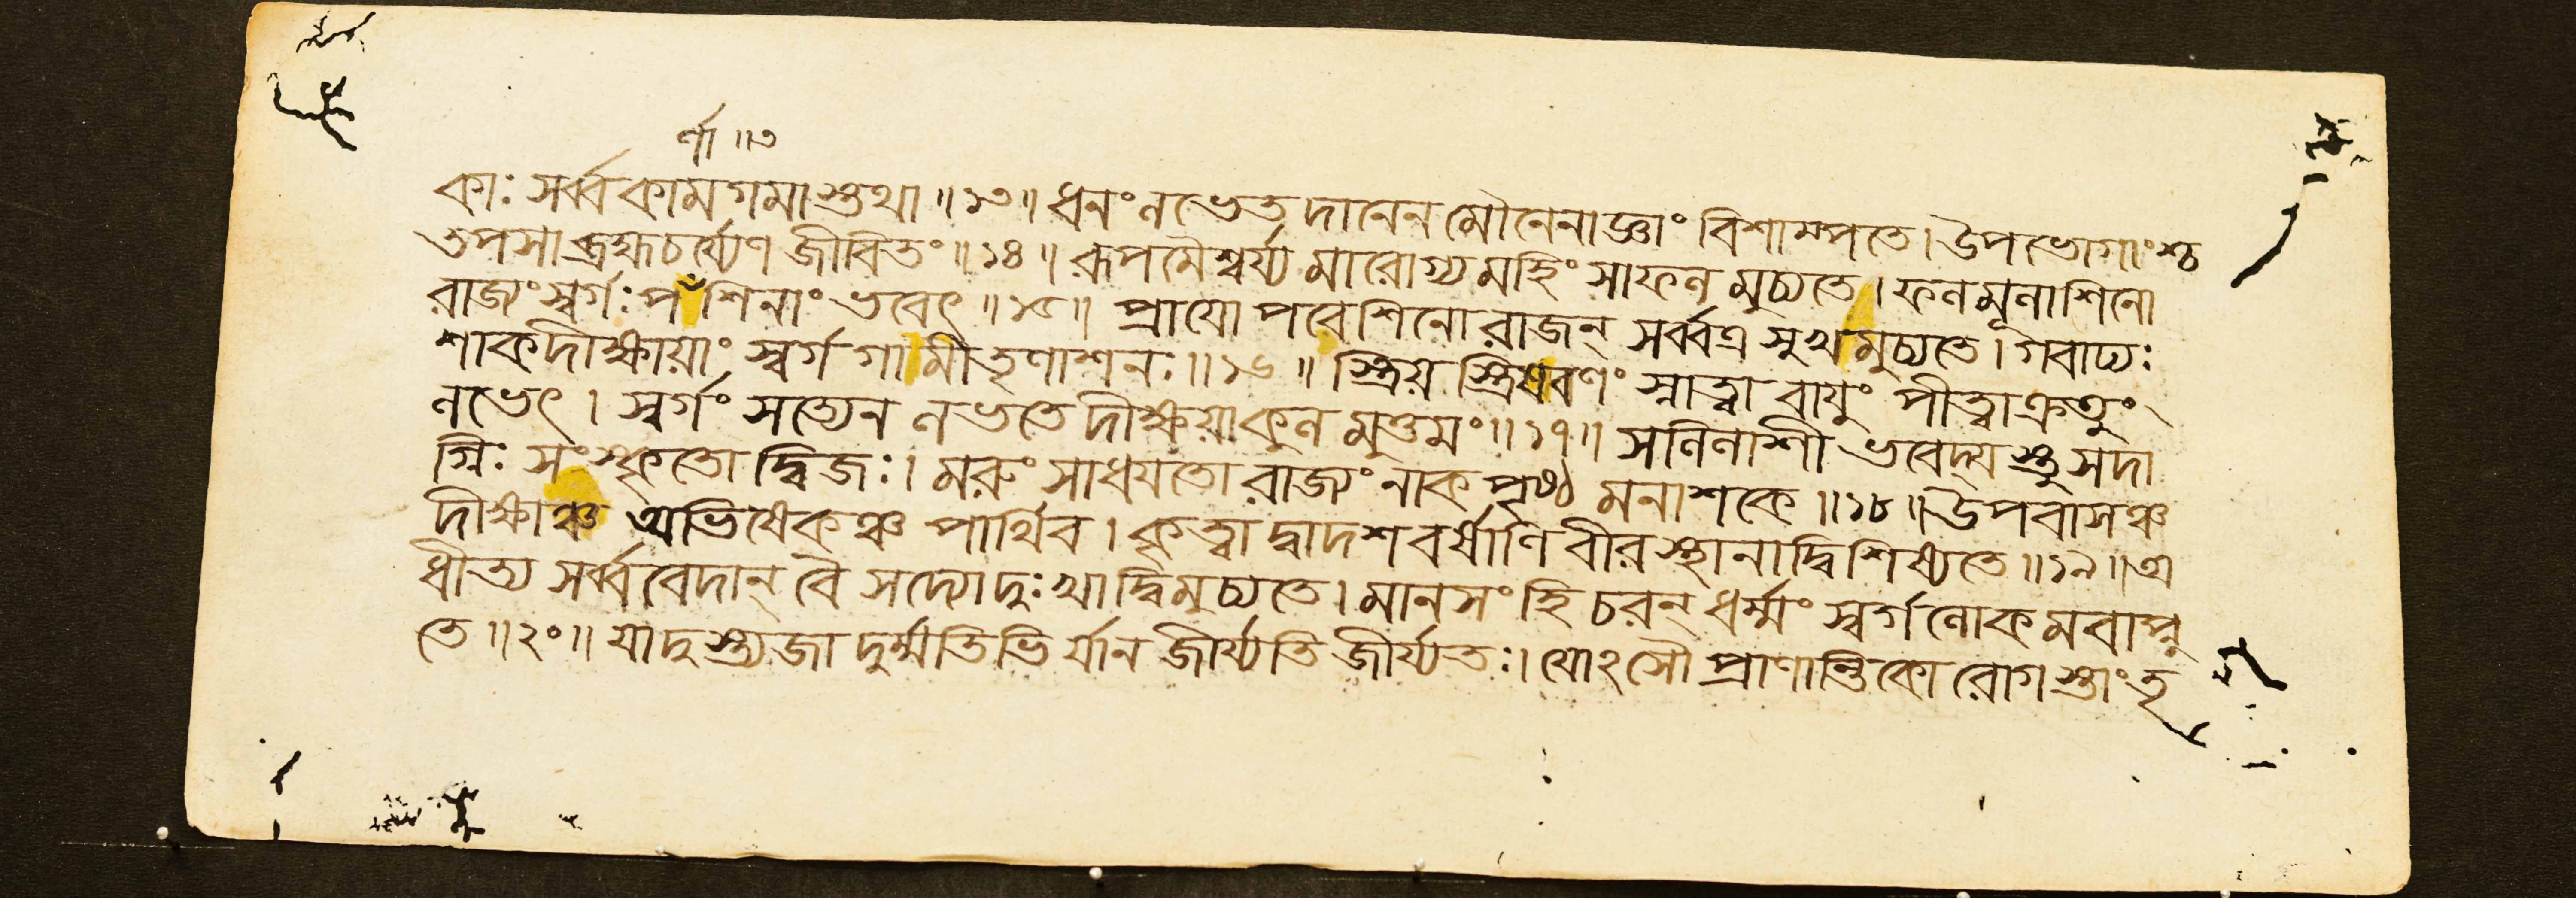 র্ণা ॥৩
কাঃ সর্ব্বকামগমাস্তথা ॥১৩॥ ধনং লভেত দানেন মৌনেনাজ্ঞাং বিশাম্পতে। উপভোগাংশ্চ
তপসা ব্রহ্মচর্য্যেণ জীবিতং ॥১৪॥ রূপমৈশ্বর্য্যমারোগ্যমহিংসাফলমুচ্যতে। ফলমূলাশিনো
রাজ্যং স্বর্গঃ পর্ণাশিনাং ভবেৎ ॥১৫॥ প্রায়োপবেশিনো রাজন্ সর্ব্বত্র সুখমুচ্যতে। গবাঢ্যঃ
শাকদীক্ষায়াং স্বর্গগামী তৃণাশনঃ ॥১৬॥ স্ত্রিয়স্ত্রিষবণং স্নাত্বা বায়ুং পীত্বা ক্রতুং
লভেৎ। স্বর্গং সত্যেন লভতে দীক্ষয়া কুলমুত্তমং ॥১৭॥ সলিলাশী ভবেদ্যস্তু সদা
গ্নিঃ সংস্কৃতো দ্বিজঃ। মরুং সাধয়তো রাজ্যং নাকপৃষ্ঠমনাশকে ॥১৮॥ উপবাসঞ্চ
দীক্ষাঞ্চ অভিষেকঞ্চ পার্থিব। কৃত্বা দ্বাদশবর্ষাণি বীরস্থানাদ্বিশিষ্যতে ॥১৯॥ অ
ধীত্য সর্ব্ববেদান্ বৈ সদ্যো দুঃখাদ্বিমুচ্যতে। মানসং হি চরন্ ধর্ম্মং স্বর্গলোকমবাপ্নু
তে ॥২০॥ যা দুস্ত্যজা দুর্ম্মতিভির্যা ন জীর্য্যতি জীর্য্যতঃ। যোঽসৌ প্রাণান্তিকো রোগস্তাং তৃ